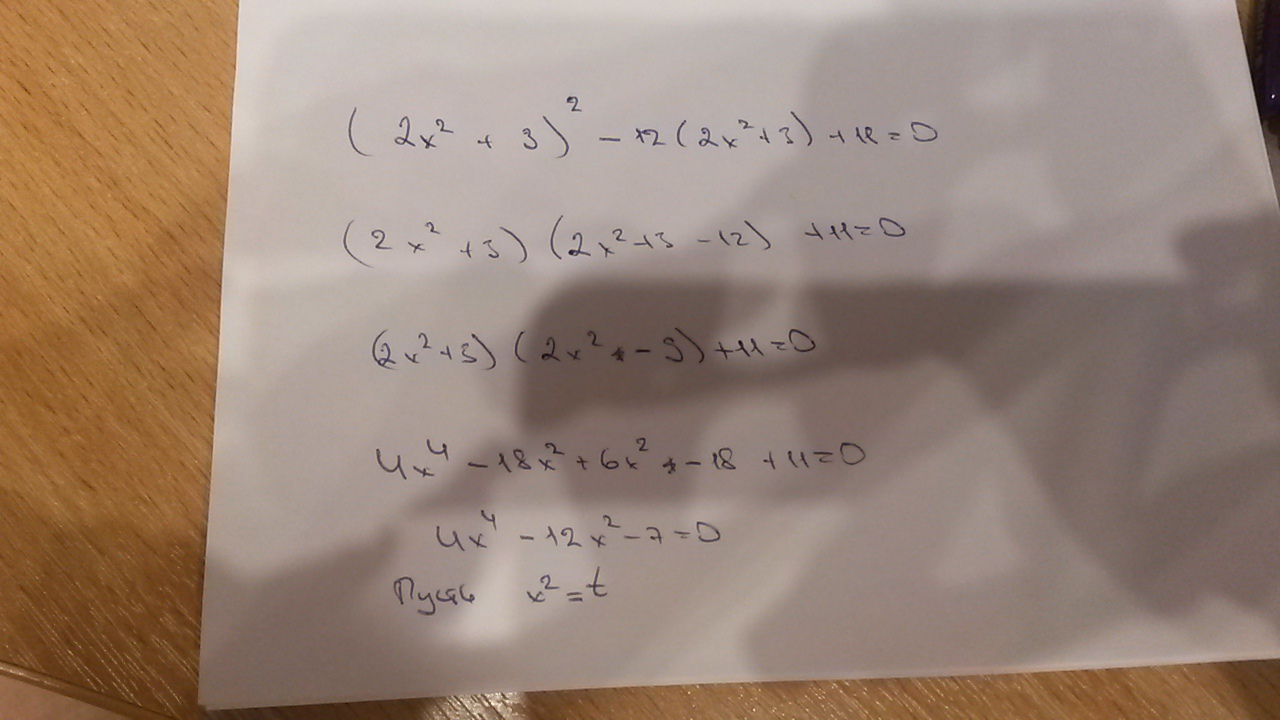 (2x² + 3)² - 12(2x²+3) + 11 = 0
(2x² + 3) (2x²+3 - 12) + 11 = 0
(2x²+3) (2x² - 9) + 11 = 0
4x⁴ - 18x² + 6x² - 18 + 11 = 0
4x⁴ - 12x² - 7 = 0
Пусть x² = t